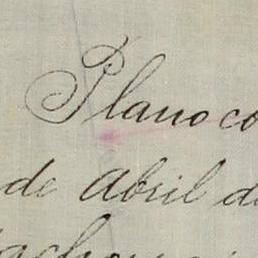 Plano co
de Abril de